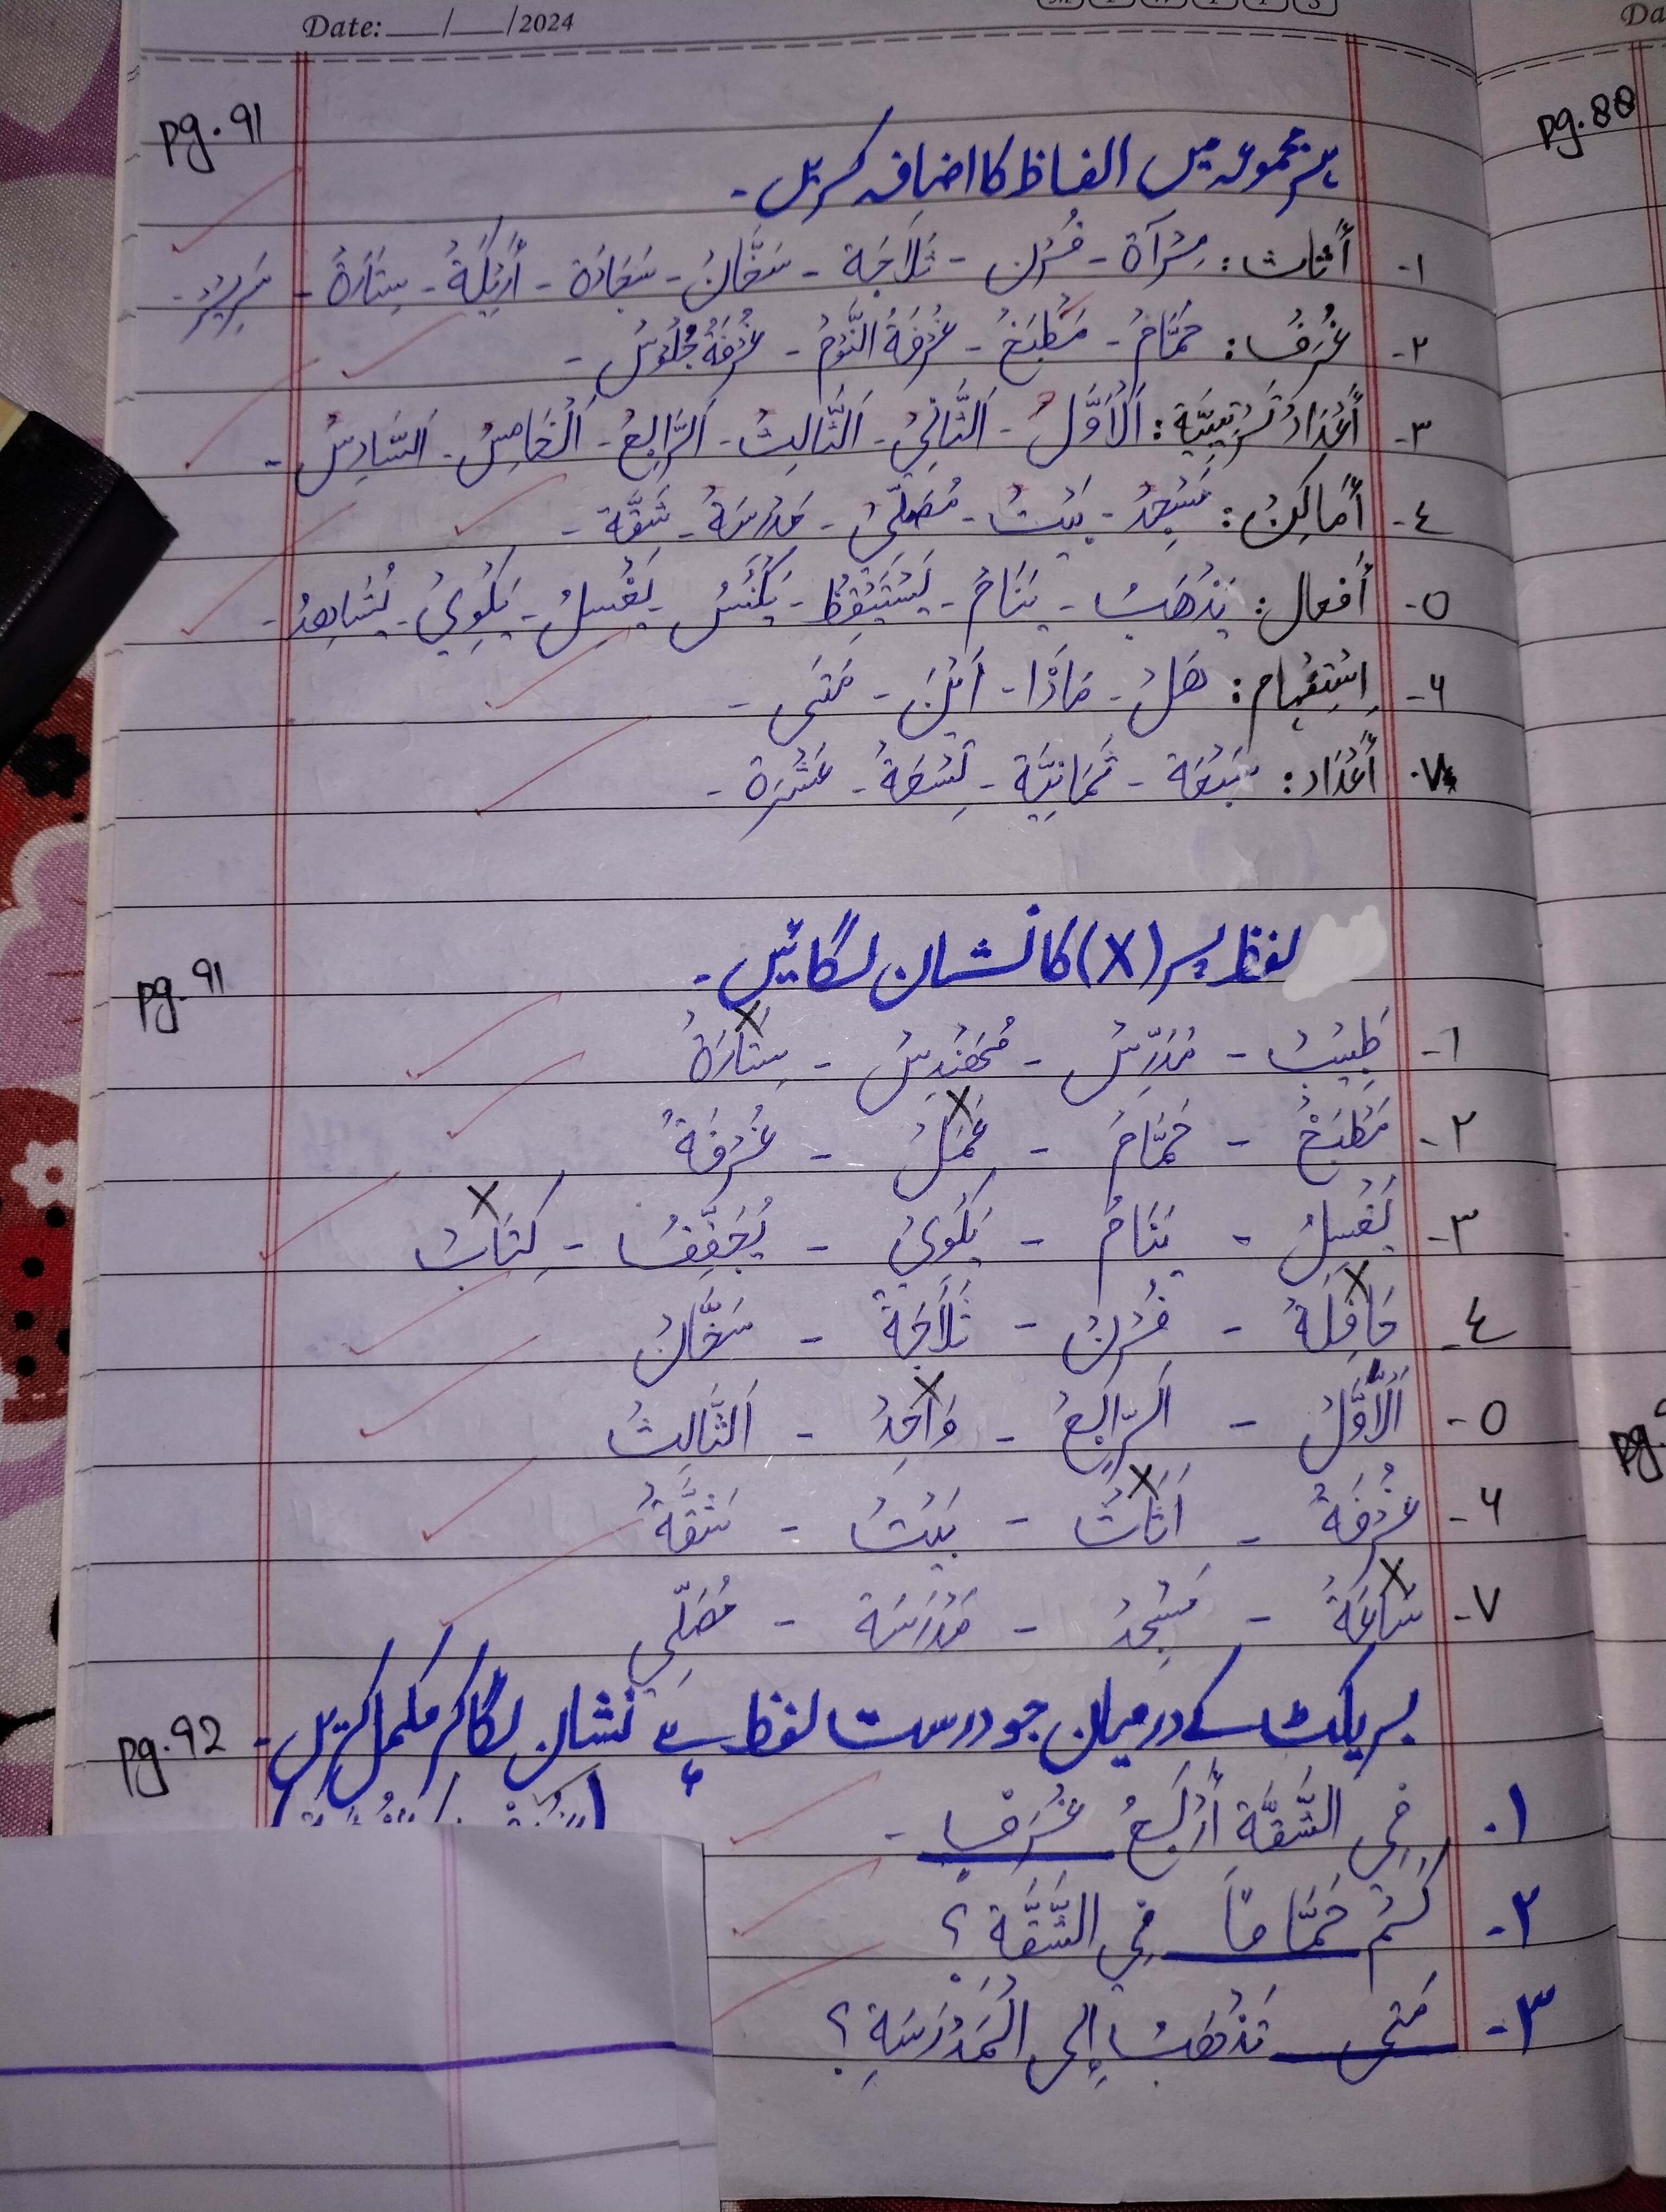 Date: ___/___/2024
pg. 91
ہر مجموعہ میں الفاظ کا اضافہ کریں۔
١- أَثاث: مِرْآة - فُرْن - ثَلَاجَة - سَخَّانُ - سَجَادَة - أَرِيْكَةُ - سِتَارَةُ - سَرِيْرُ -
٢- غُرَفُ: حَمَّامُ - مَطْبَخُ - غُرْفَةُ النَّوْمُ - غُرْفَةُ جُلُوْسُ -
٣- أَعْدَادُ تَرْتِيْبِيَّة: اَلْأَوَّلُ - اَلثَّانِيُ - اَلثَّالِثُ - اَلرَّابِعُ - اَلْخَامِسُ - اَلسَّادِسُ -
٤- أَماكِنُ: مَسْجِدُ - بَيْتُ - مُصَلّىٰ - مَدْرَسَةُ - شَقَّة -
٥- أَفعال: يَذْهَبُ - يَنَامُ - يَسْتَيْقِظُ - يَكْنُسُ - يَغْسِلُ - يَكْوِيُ - يُشَاهِدُ -
۶- اِسْتِفْهام: هَلْ - مَاذَا - اَيْنَ - مَتَى -
٧- أَعْدَاد: سَبْعَة - ثَمَانِيَّة - تِسْعَةُ - عَشْرَة -
pg. 91
لفظ پر (X) کا نشان لگائیں۔
١- طَبِيْبُ - مُدَرِّسُ - مُهَنْدِسُ - سِتَارَةُ X
٢- مَطْبَخُ - حَمَّامُ - عَمَلُ X - غُرْفَةُ
٣- يَغْسِلُ - يَنَامُ - يَكْوِىُ - يُجَفِّفُ - كِتَابُ X
٤- حَافِلَةُ X - فُرْنُ - ثَلَاَجَةُ - سَخَّانُ
٥- اَلْأَوَّلُ - اَلرَّابِعُ - وَاحِدُ X - اَلثَّالِثُ
۶- غُرْفَةُ - اَثَاثُ X - بَيْتُ - شَقَّةُ
٧- سَاعَةُ X - مَسْجِدُ - مَدْرَسَة - مُصَلِّى
pg. 92
بریکٹ کے درمیان جو درست لفظ ہے نشان لگا کر مکمل کریں۔
١. فِى الشَّقَّةِ أَرْبَعُ غُرَفٍ -
٢- كَمْ حَمَّامًا فِى الشَّقَّةِ ؟
٣- مَتى تَذْهَبُ إِلى الْمَدْرَسَةِ ؟
pg. 80